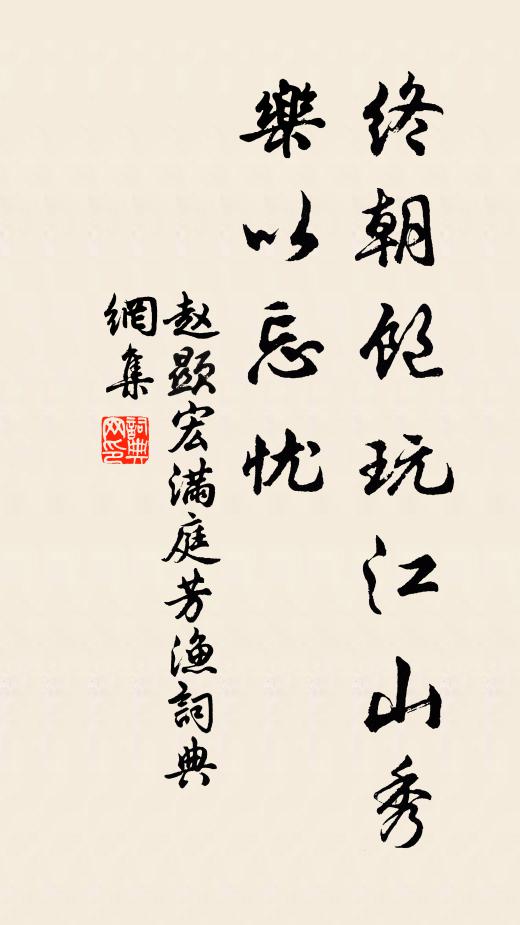 終朝飽玩江山秀
樂以忘忧
赵顯宏满庭芳渔詞典
網集
詞典
网印